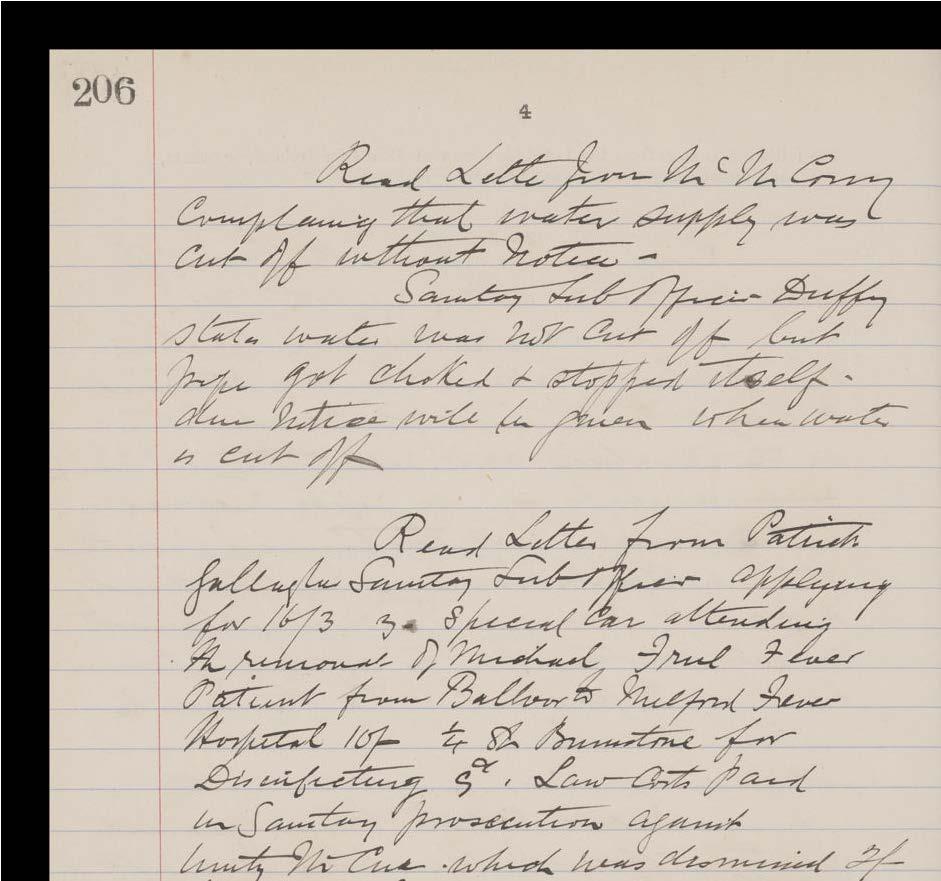 206
4
Read Letter from Mc M Conry
Complaing that water supply was
cut off without Notice -
Sanitary Sub Officer Duffy
states water was not cut off but
pipe got choked & stopped itself -
due Notice will be given when water
is cut off
Read Letter from Patrick
Gallagher Sanitary Sub Officer applying
for 16/3 Special Car attending
the removal of Michael Friel Fever
Patient from to Milford Fever
Hospital 10/- Brimstone for
Disinfecting Law Costs Paid
in Sanitary prosecution against
Unity McCue which was dismissed